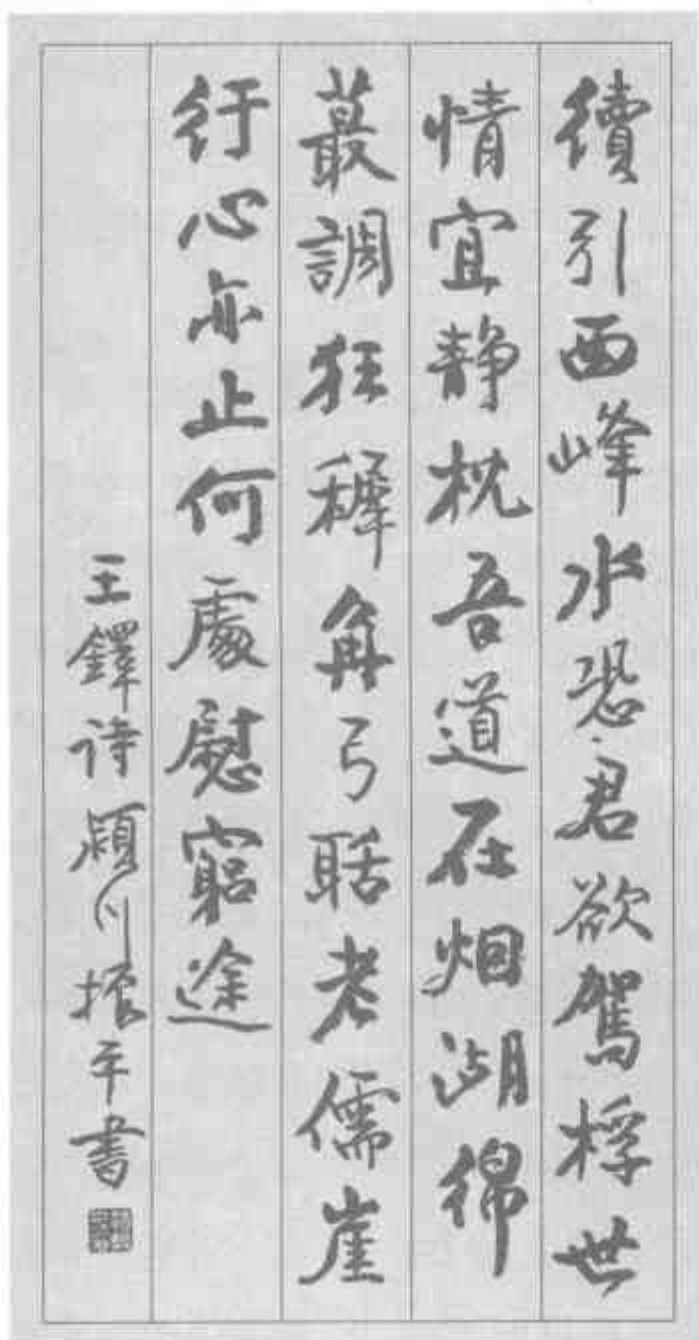 續引西峰水恐君欲駕桴世
情宜静枕吾道在烟湖綿
蕞調狂穉角弓聒老儒崖
行心亦止何處慰窮途
王鐸诗颍川振平書